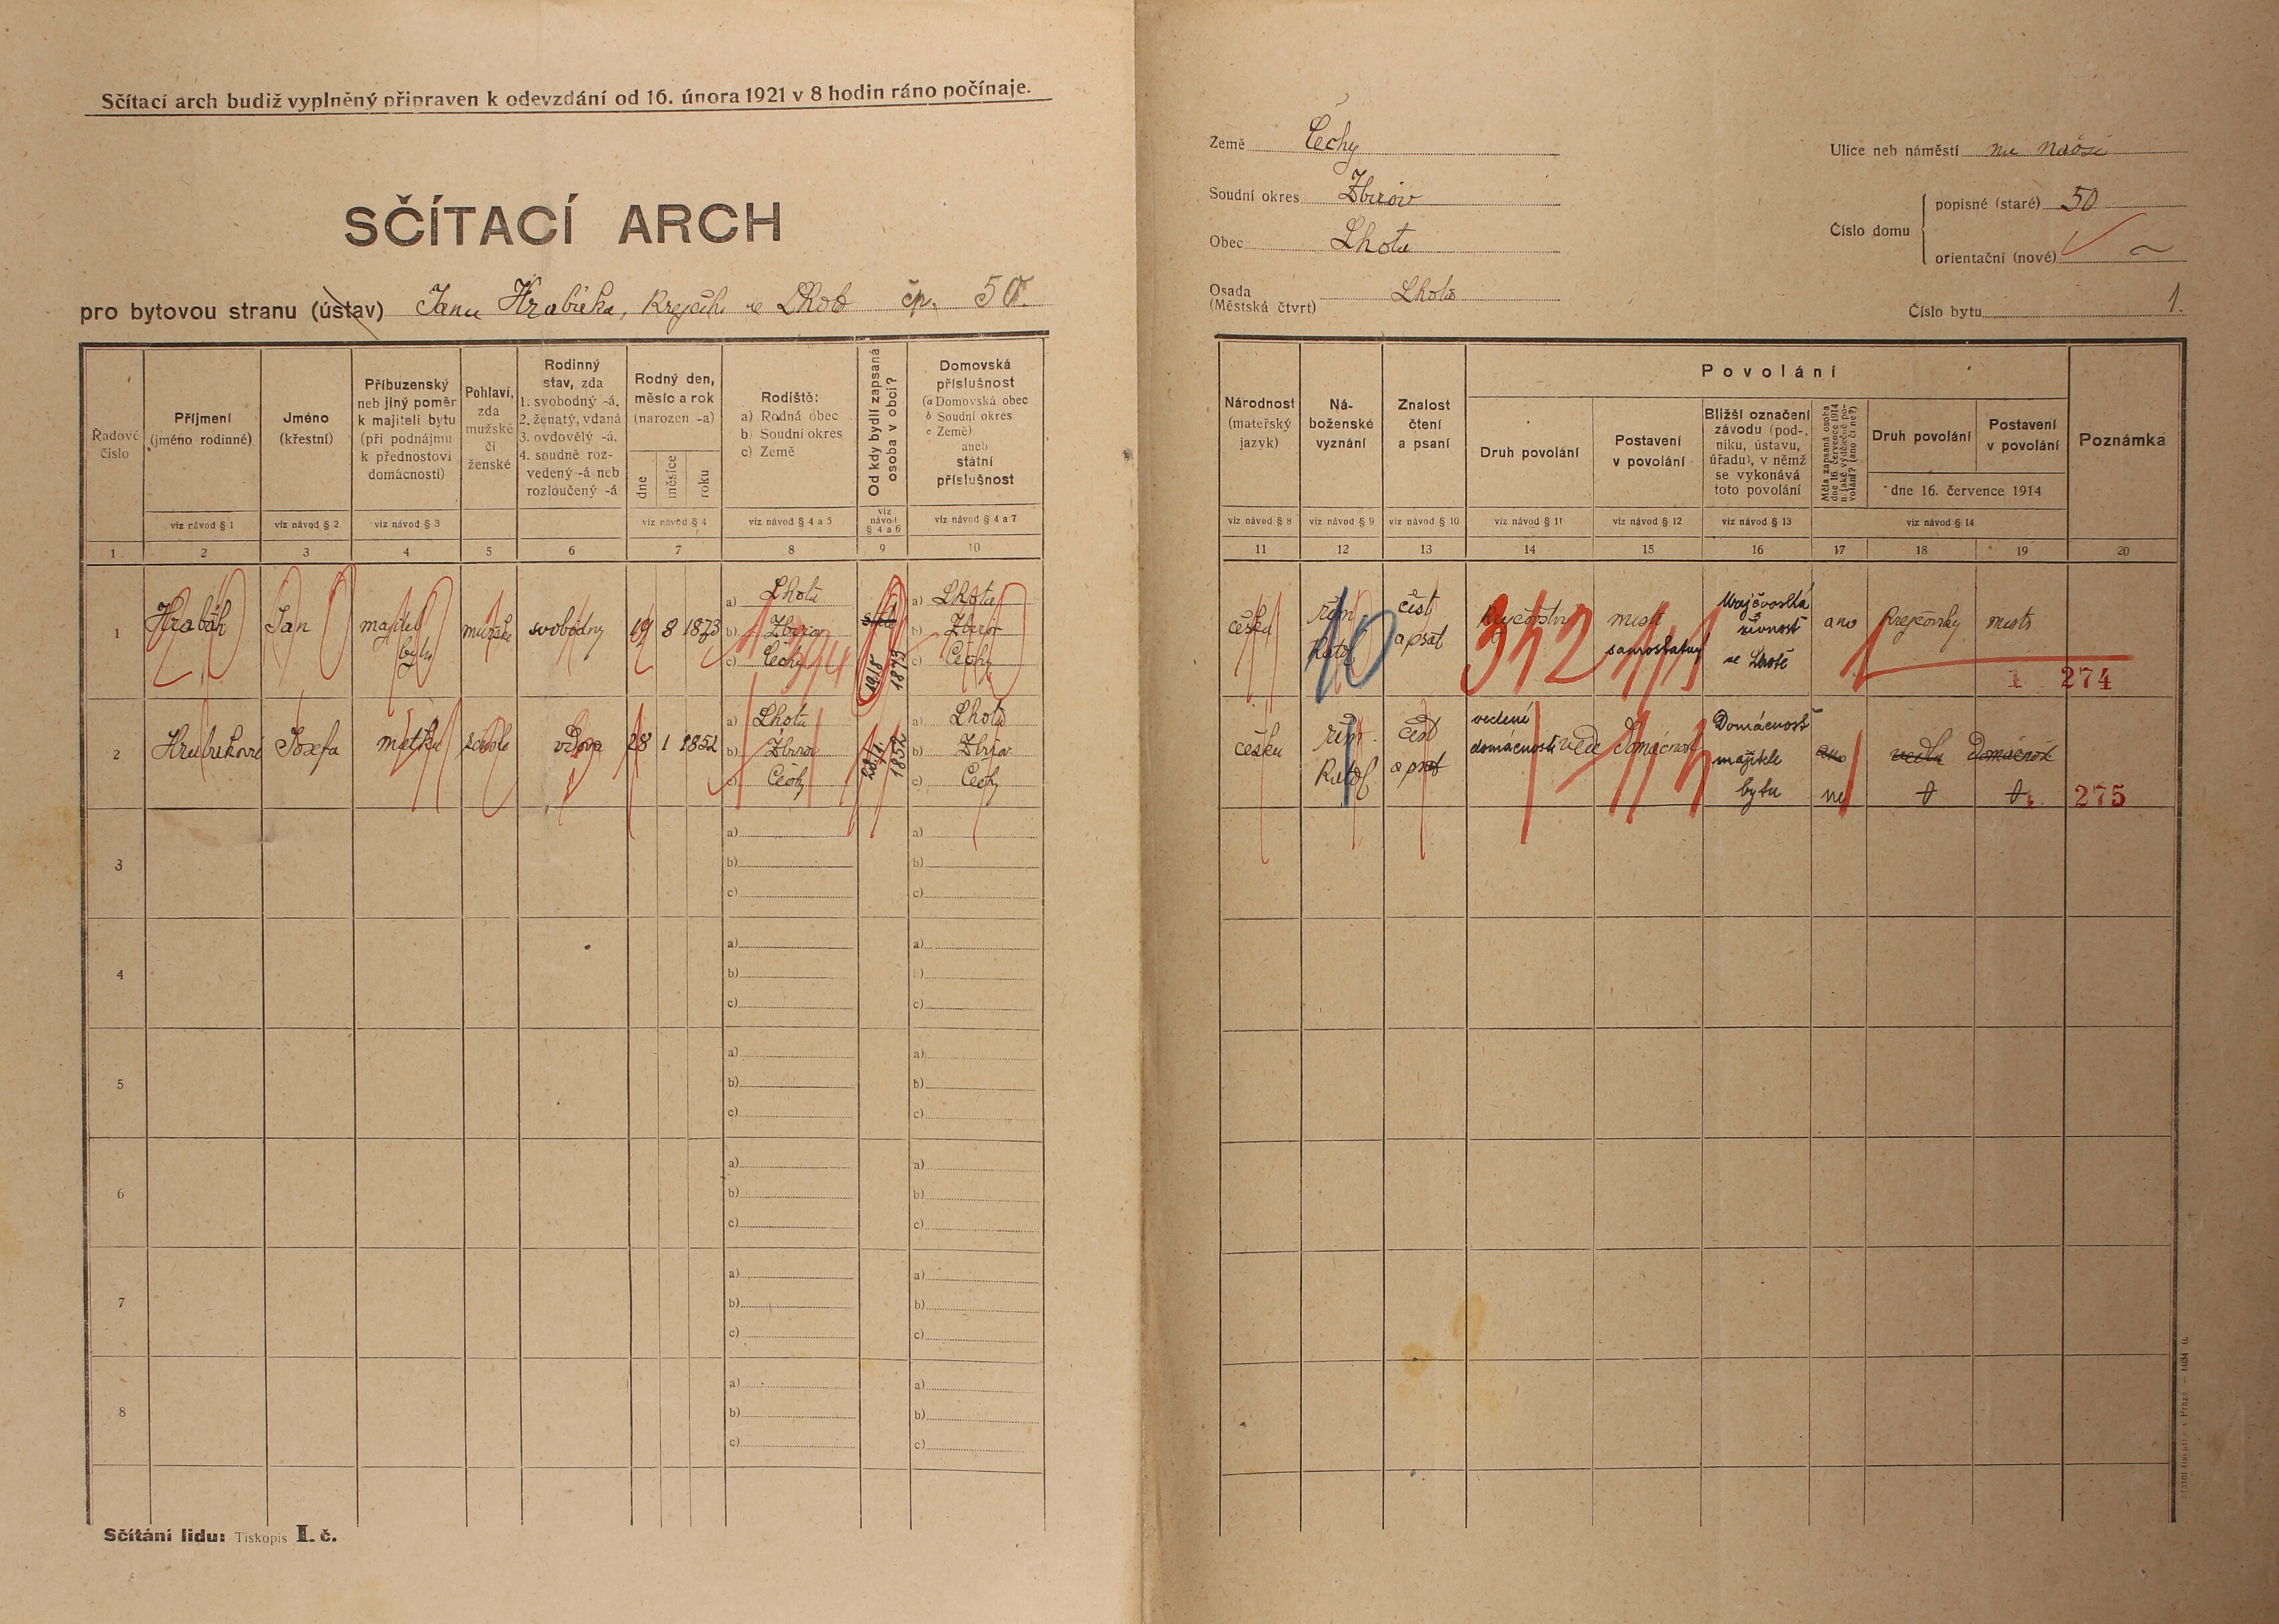 Sčítací arch budiž vyplněný připraven k odevzdání od 16. února 1921 v 8 hodin ráno počínaje.
SČÍTACÍ ARCH
pro bytovou stranu (ústav) Jana Hrabáka, Krejčíh ve Lhotě čp. 50.
Země Čechy
Soudní okres Zbirov
Obec Lhota
Osada Lhota
(Městská čtvrt)
Ulice neb náměstí na
Číslo domu
popisné (staré) 50
orientační (nové)
Číslo bytu 1.
Řadové číslo
1
Příjmení
(jméno rodinné)
viz návod § 1
2
Jméno
(křestní)
viz návod § 2
3
Příbuzenský
neb jiný poměr
k majiteli bytu
(při podnájmu
k přednostovi
domácnosti)
viz návod § 3
4
Pohlaví,
zda
mužské
či
ženské
5
Rodinný
stav, zda
1. svobodný -á,
2. ženatý, vdaná
3. ovdovělý -á,
4. soudně roz-
vedený -á neb
rozloučený -á
6
Rodný den,
měsíc a rok
(narozen -a)
dne
měsíce
roku
viz návod § 4
7
Rodiště:
a) Rodná obec
b) Soudní okres
c) Země
viz návod § 4 a 5
8
Od kdy bydlí zapsaná
osoba v obci?
viz
návod
§ 4 a 6
9
Domovská
příslušnost
(a Domovská obec
b Soudní okres
c Země)
aneb
státní
příslušnost
viz návod § 4 a 7
10
Národnost
(mateřský
jazyk)
viz návod § 8
11
Ná-
boženské
vyznání
viz návod § 9
12
Znalost
čtení
a psaní
viz návod § 10
13
Povolání
Druh povolání
viz návod § 11
14
Postavení
v povolání
viz návod § 12
15
Bližší označení
závodu (pod-
niku, ústavu,
úřadu), v němž
se vykonává
toto povolání
viz návod § 13
16
Měla zapsaná osoba
dne 16. července 1914
nějaké výdělečné po-
volání? (ano či ne?)
17
Druh povolání
18
Postavení
v povolání
19
dne 16. července 1914
viz návod § 14
Poznámka
20
1
Hrabák
Jan
majitel
bytu
mužské
svobodný
19 8 1873
a) Lhota
b) Zbirov
c) Čechy
19/8
1873
a) Lhota
b) Zbirov
c) Čechy
česká
řím.
Katol
číst
a psát
Krejčovství
mistr
samostatný
Krejčovská
živnost
ve Lhotě
ano
Krejčovský
mistr
10
312
1 274
2
Hrabáková
Josefa
matka
vdova
28 1 1852
a) Lhota
b) Zbirov
c) Čechy
28/1
1852
a) Lhota
b) Zbirov
c) Čechy
česká
řím.
Katol
číst
a psát
vedení
domácnosti
vede domácnost
Domácnost
majitele
bytu
ano
ne
vedla
Domácnost
0
0
275
3
a)
b)
c)
a)
b)
c)
4
a)
b)
c)
a)
b)
c)
5
a)
b)
c)
a)
b)
c)
6
a)
b)
c)
a)
b)
c)
7
a)
b)
c)
a)
b)
c)
8
a)
b)
c)
a)
b)
c)
Sčítání lidu: Tiskopis I. č.